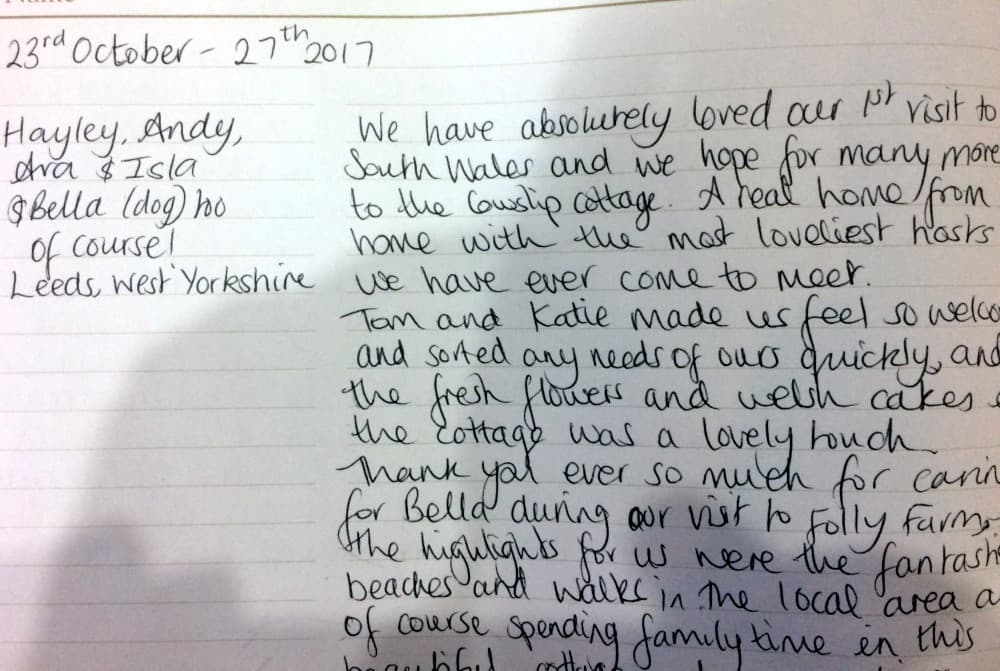 23rd October - 27th 2017
Hayley, Andy,
Ava & Isla
& Bella (dog) too
of course!
Leeds, West Yorkshire
We have absolutely loved our 1st visit to
South Wales and we hope for many more
to the Cowslip cottage. A real home from
home with the most loveliest hosts
we have ever come to meet.
Tom and Katie made us feel so welco
and sorted any needs of ours quickly, and
the fresh flowers and welsh cakes
the cottage was a lovely touch
Thank you ever so much for carin
for Bella during our visit to Folly Farm.
The highlights for us were the fantasti
beaches and walks in the local area a
of course spending family time in this
beautiful